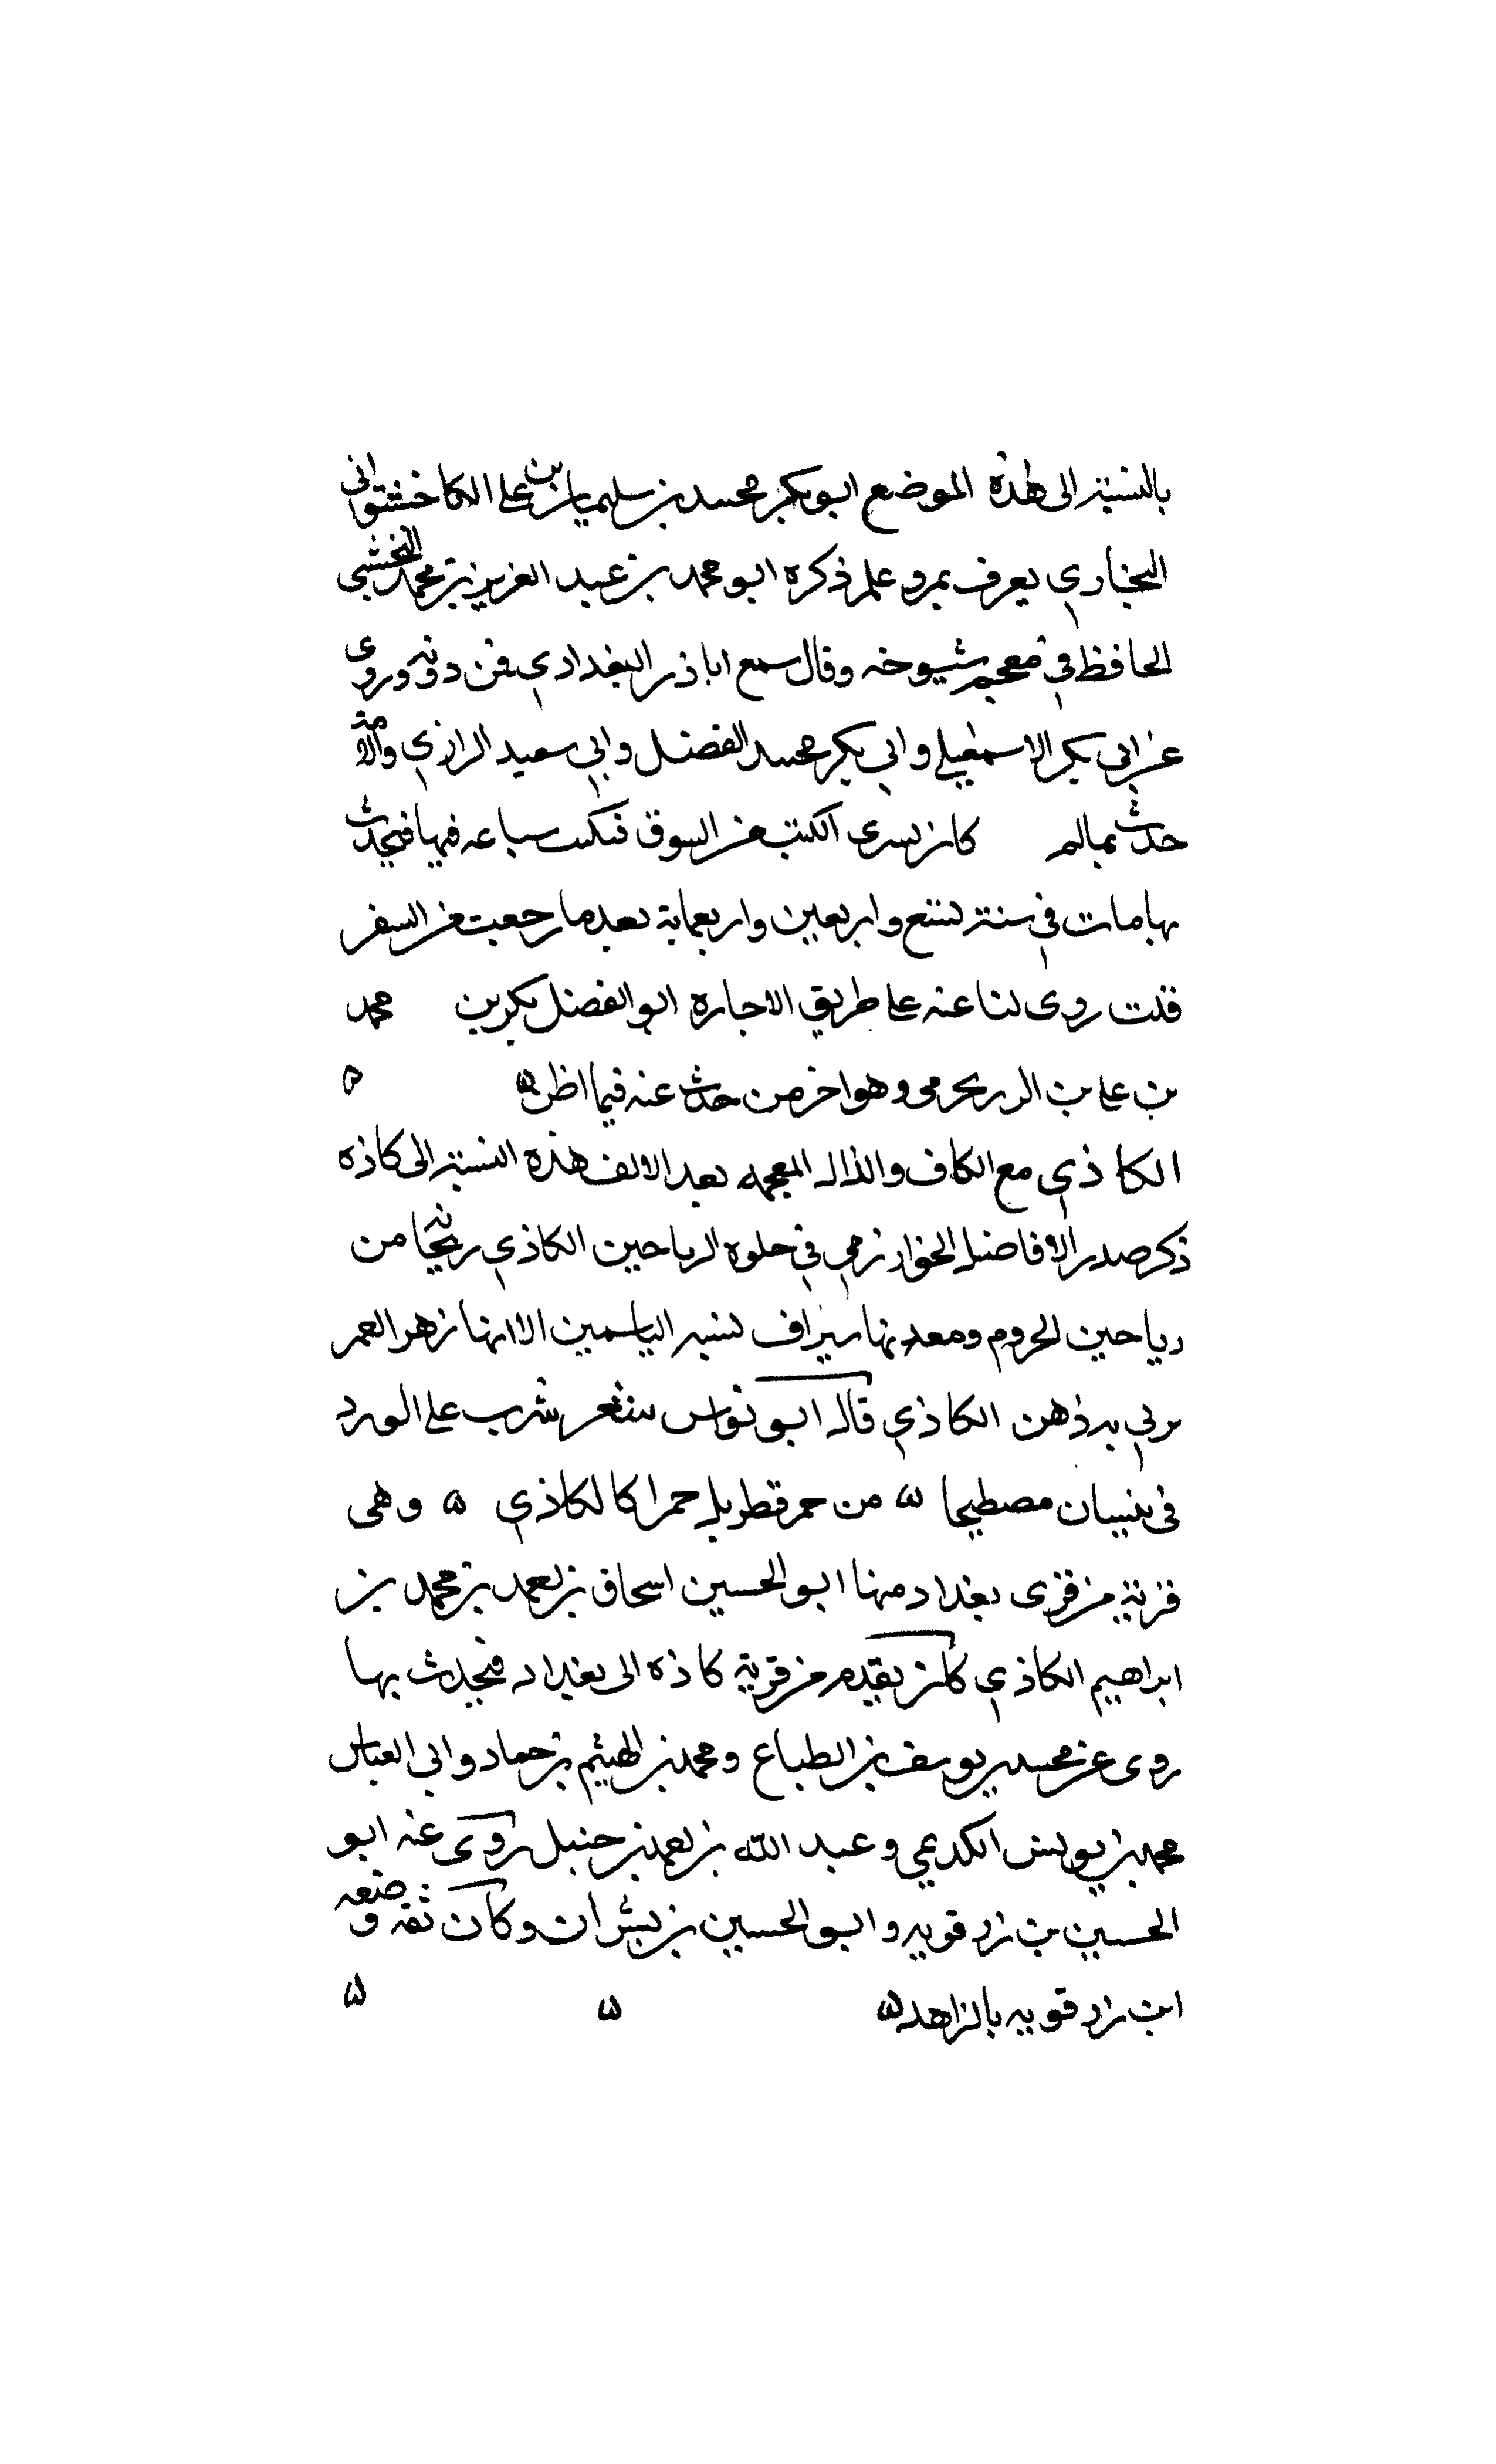 بالنسبة الى هذه الموضع ابو بكر محمد بن سليمان بن على الكاخشتواني
البخاري يعرف بمرد علم ذكره ابو محمد بن عبد العزيز بن محمد النخشبى
الحافظ في معجم شيوخه وقال سمع ابا ذر البغدادي فمن دونه وروى
عن ابي بكر الاسمعيلي وابي بكر محمد الفضل وابي سعيد الرازي
حدث بمالم كان يسرى الكتب من السوق فيكتب سماعه فيها فيحدث
بها مات في سنة تسع واربعين واربعماية بعدما رجعت من السفر
قلت روى لنا عنه على طريق الاجازه ابو الفضل بكر بن محمد
بن على بن وهو اخر من حدث عنه فيما اظن ه ه
الكاذي مع الكاف والذال المعجمه بعد الالف هذه النسبة الى كاذه
ذكر صدر الافاضل الخوارزمي في حلوه الرياحين الكاذي ريحانه من
رياحين الحروم ومعدنها سيراف تشبه الياسمين الا انها زهر العمر
دهن الكاذي قال ابو نواس شعر شرب على الورد
فى نيسان مصطبحا ه من خمر قطربل حمرا كالكاذي ه وهى
قرية من قرى بغداد منها ابو الحسين اسحاق بن احمد بن محمد بن
ابراهيم الكاذي كان يقدم من قرية كاذه الى بغداد فيحدث بها
روى عن محمد بن يوسف بن الطباع ومحمد بن الهيثم بن حماد وابى العباس
محمد بن يونس الكديمي وعبد الله بن احمد بن حنبل روى عنه ابو
الحسين بن زرقويه وابو الحسين بن بشران وكان ثقه وصفه
ابن زرقويه بالزاهد ه ه ه